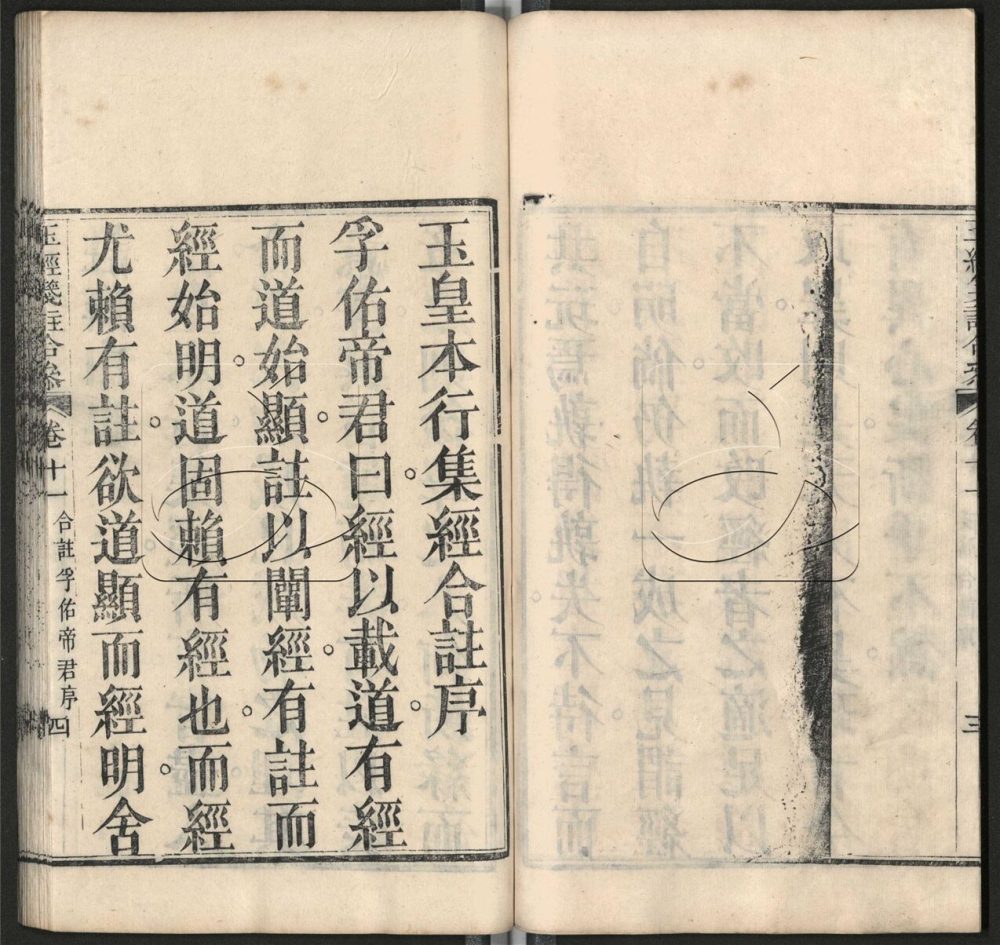 玉皇本行集經合註序
孚佑帝君曰。經以載道。有經
而道始顯。註以闡經。有註而
經始明。道固賴有經也。而經
尤賴有註。欲道顯而經明。舍
玉經箋註合參 卷十一 合註孚佑帝君序 四
三